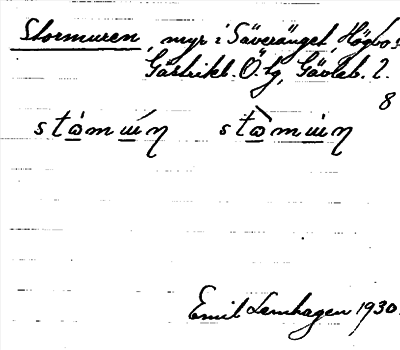 Stormuren, myr i Säveränget, Högbo s.
Gästrikl. Ö. tg, Gävleb. l.
8
stòmɯ́n stòmɯ̀n
Emil Lenhagen 1930.